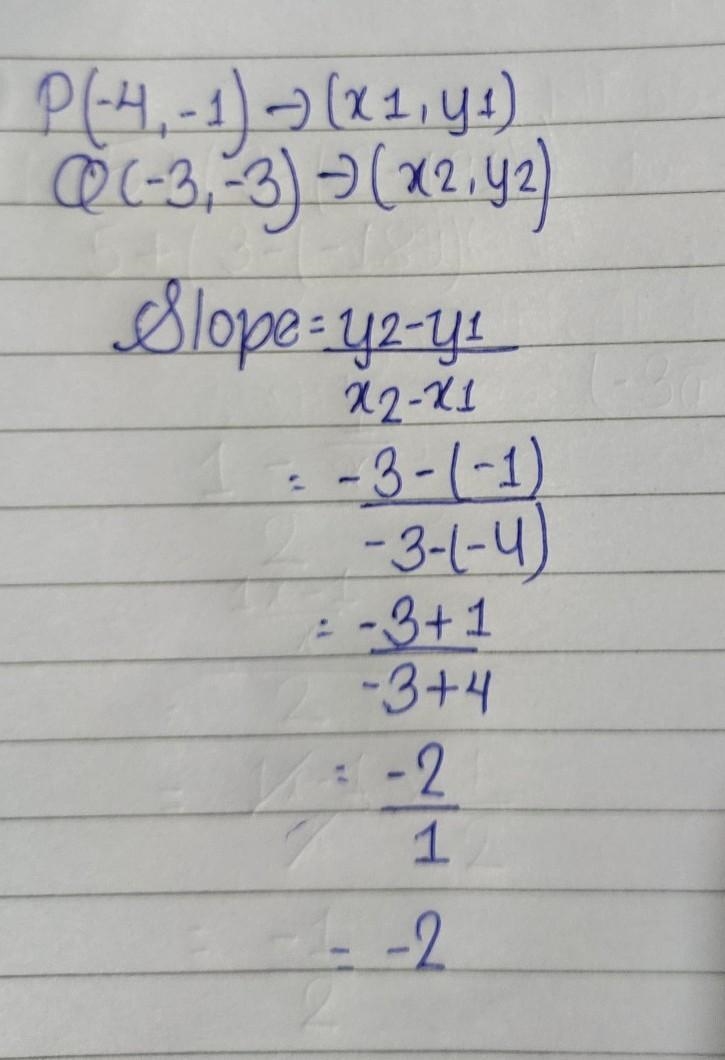 P(-4,-1)→(x1,y1)
Q(-3,-3)→(x2,y2)
Slope=y2-y1
x2-x1
= -3-(-1)
-3-(-4)
= -3+1
-3+4
= -2
1
= -2